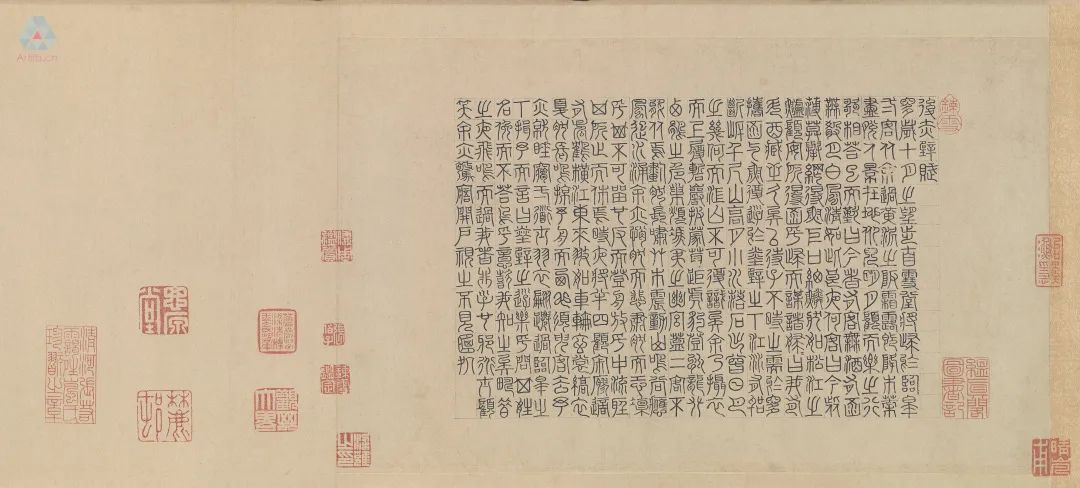 後赤壁賦
是歲十月之望步自雪堂將歸於臨皋
二客從余過黃泥之坂霜露既降木葉
盡脫人景在地仰見明月顧而樂之行
歌相答已而歎曰今者有客無酒有酒
無殽月白風清如此良夜何客曰今者
薄莫舉網得魚巨口細鱗狀如松江之
鱸顧安所得酒乎歸而謀諸婦婦曰我有
斗酒藏之久矣以待子不時之需於是
攜酒與魚復遊於赤壁之下江流有聲
斷岸千尺山高月小水落石出曾日月
之幾何而江山不可復識矣余乃攝衣
而上履巉巖披蒙茸踞虎豹登虬龍攀
栖鶻之危巢俯馮夷之幽宮蓋二客不
能從焉劃然長嘯草木震動山鳴谷應
風起水涌余亦悄然而悲肅然而恐凜
乎其不可留也反而登舟放乎中流聽
其所止而休焉時夜將半四顧寂寥適
有孤鶴橫江東來翅如車輪玄裳縞衣
戛然長鳴掠予舟而西也須臾客去予
亦就睡夢一道士羽衣翩躚過臨皋之
下揖予而言曰赤壁之遊樂乎問其姓
名俛而不答嗚呼噫嘻我知之矣疇昔
之夜飛鳴而過我者非子也耶道士顧
笑余亦驚寤開戶視之不見其處